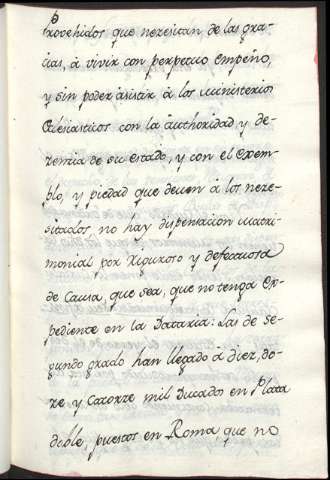 Provehidos que nezesitan de las gra-
cias, à vivir con perpetuo empeño,
y sin poder asistir à los ministerios
Eclesiasticos con la authoridad y de-
zencia de su estado, y con el Exem-
plo, y piedad que deven à los neze-
sitados, no hay dispensacion matri-
monial por rigurosa y defectuosa
de Causa, que sea, que no tenga ex-
pediente en la Dataria: Las de se-
gundo grado han llegado à diez, do-
ze y Catorze mil Ducados en Plata
doble, puestos en Roma, que no